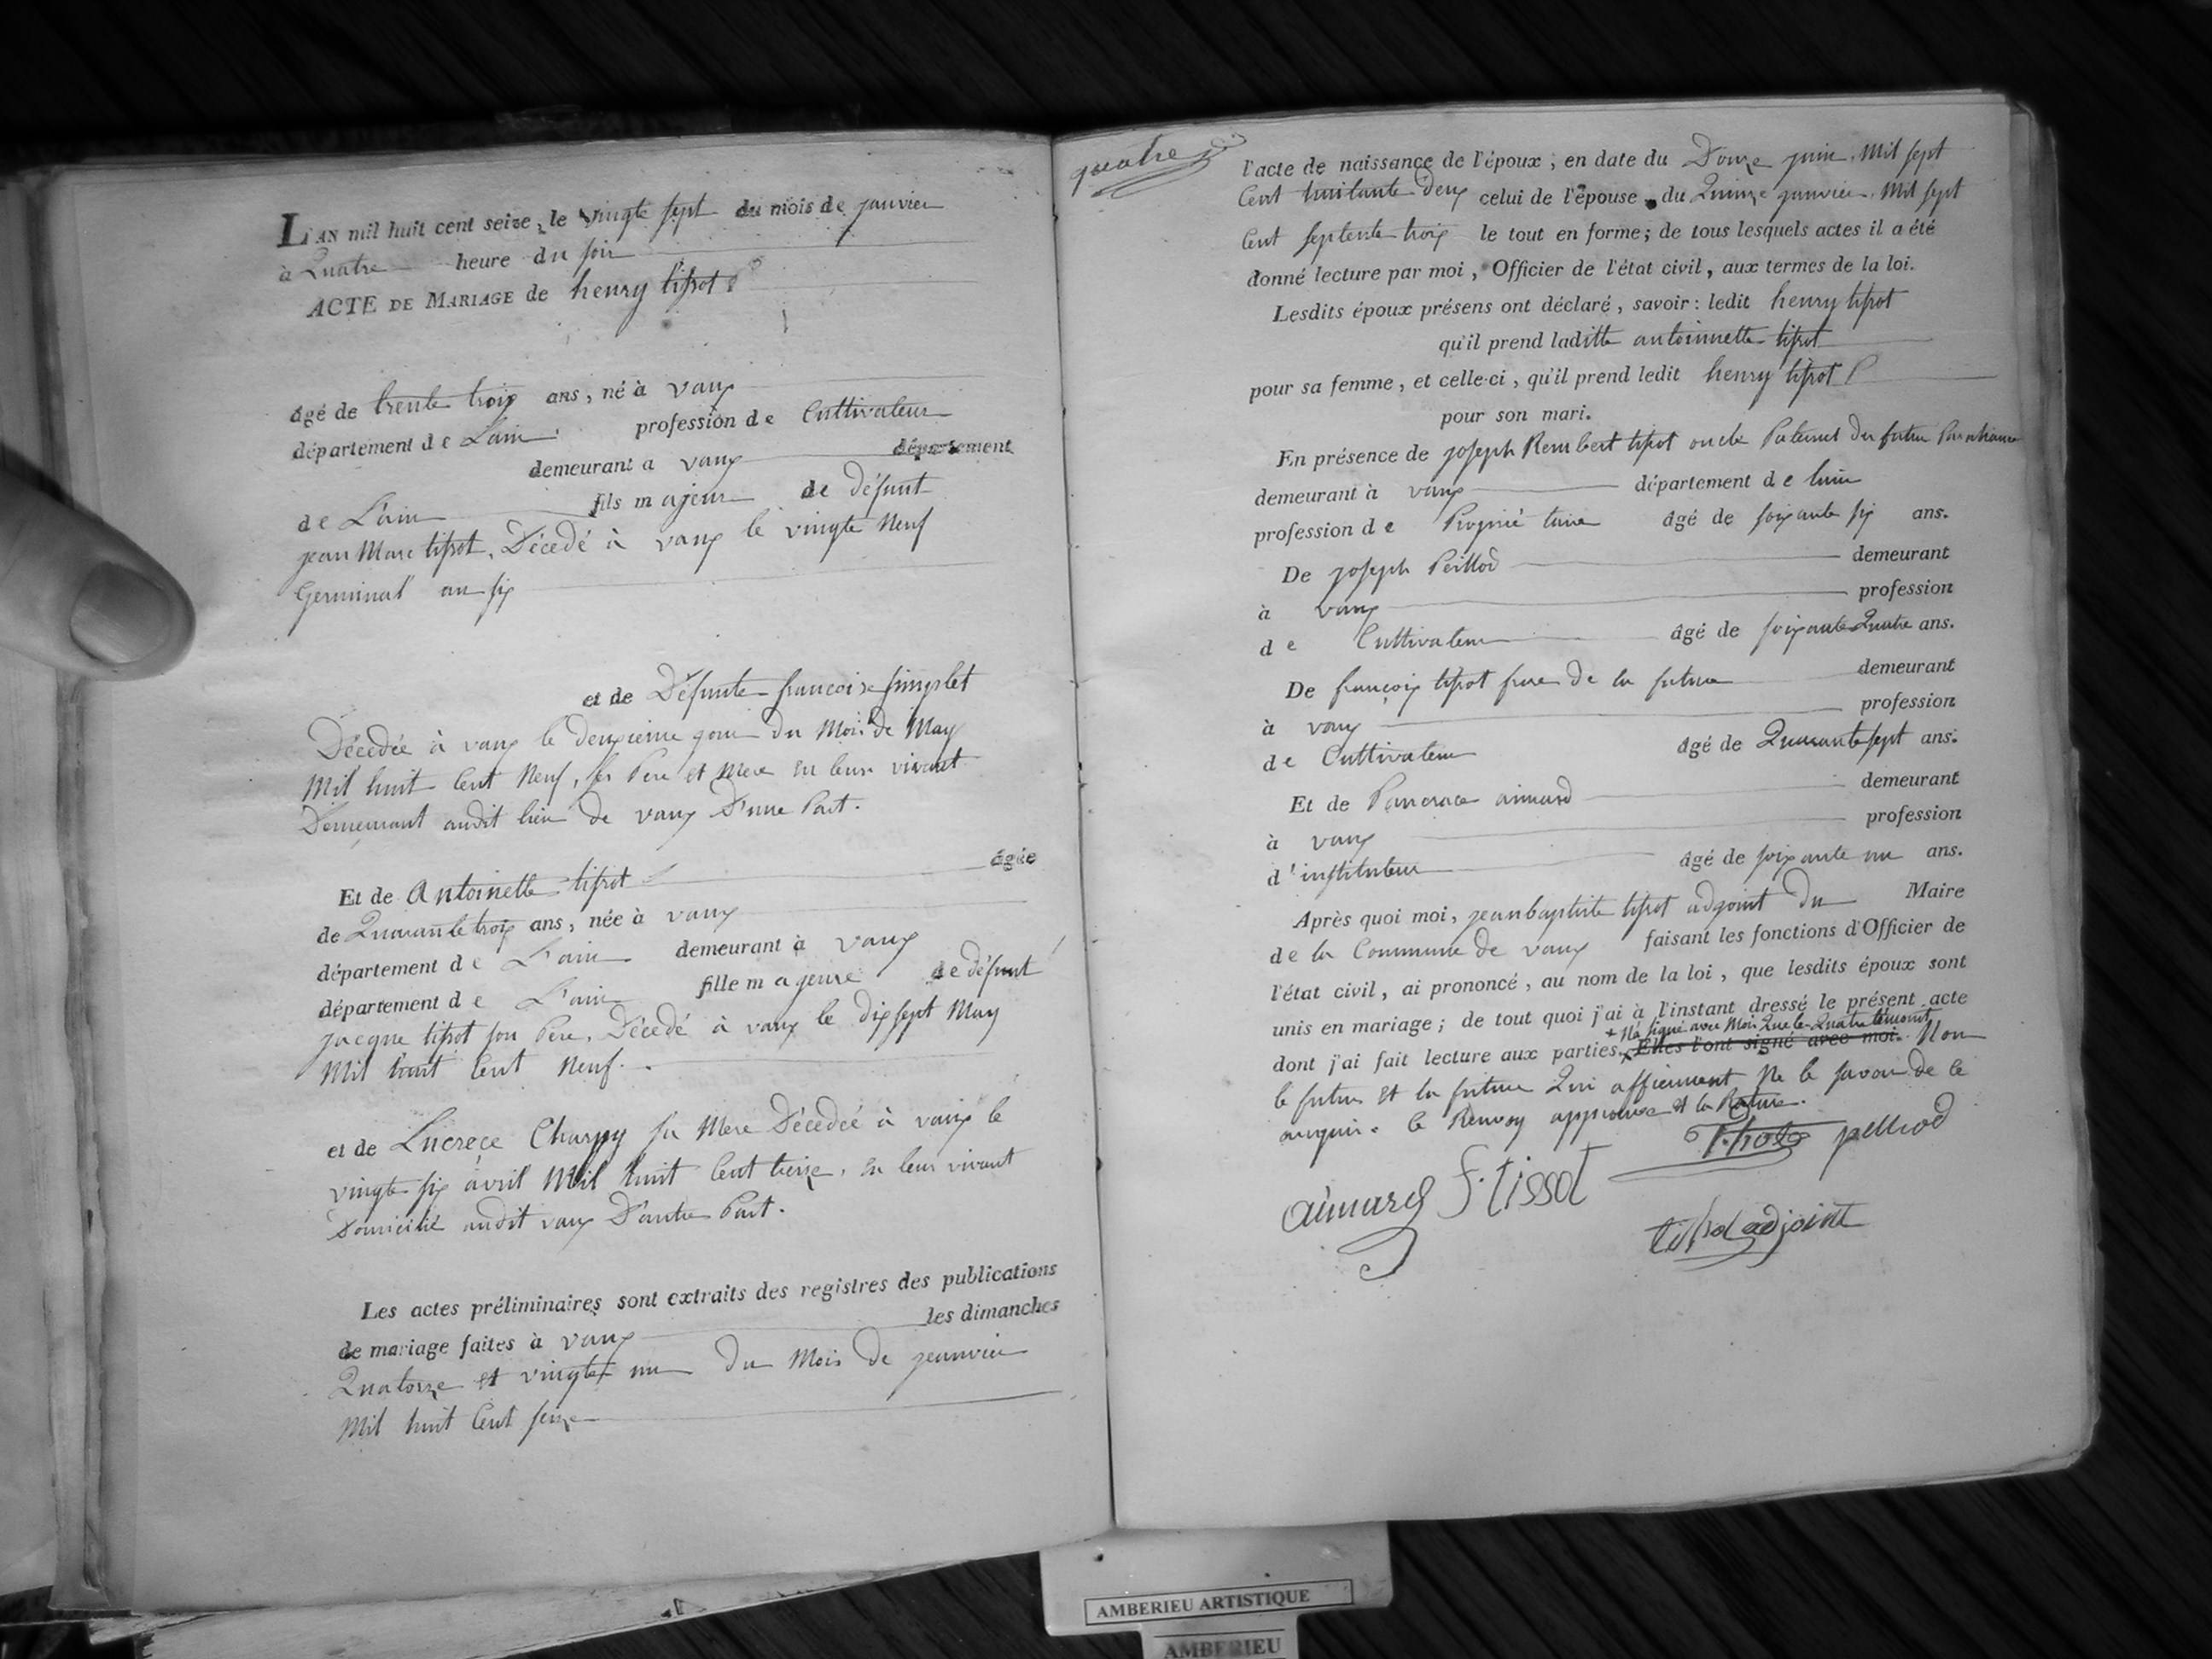 L'AN mil huit cent seize, le vingte sept du mois de janvier
à Quatre heure du soir
ACTE DE MARIAGE de henry tissot
âgé de trente trois ans, né à vaux
département de L'ain profession de Cultivateur
demeurant a vaux département
de L'ain fils majeur de défunt
jean Marc tissot, Décedé à vaux le vingte Neuf
Germinal an six
et de Défunte francoise simplet
Décedée à vaux le deuxieme jour du Mois de May
Mil huit Cent Neuf, ses Pere et Mere en leur vivant
Demeurant audit lieu de vaux D'une Part.
Et de Antoinette tissot âgée
de Quarante trois ans, née à vaux
département de L'ain demeurant à vaux
département de L'ain fille majeure de défunt
jacque tissot son Pere, Décedé à vaux le dix sept May
Mil huit Cent Neuf.
et de Lucrece Charpy sa Mere Décedée à vaux le
vingte six avril Mil huit Cent treize, en leur vivant
Domicilié audit vaux D'autre Part.
Les actes préliminaires sont extraits des registres des publications
de mariage faites à vaux les dimanches
Quatorze et vingte un du Mois de jeanvier
Mil huit Cent seize
quatre
l'acte de naissance de l'époux ; en date du Douze juin, Mil sept
Cent huitante deux celui de l'épouse du Quinze janvier, Mil sept
Cent septente trois le tout en forme; de tous lesquels actes il a été
donné lecture par moi, Officier de l'état civil, aux termes de la loi.
Lesdits époux présens ont déclaré, savoir : ledit henry tissot
qu'il prend laditte antoinnette tissot
pour sa femme, et celle-ci, qu'il prend ledit henry tissot
pour son mari.
En présence de joseph Rembert tissot oncle Paternel du futur
demeurant à vaux département de lain
profession de Proprié taire âgé de soixante six ans.
De joseph Peillod demeurant
à vaux profession
de Cultivateur âgé de soixante Quatre ans.
De françois tissot frere de la future demeurant
à vaux profession
de Cultivateur âgé de Quarante sept ans.
Et de Pancrace aimard demeurant
à vaux profession
d'instituteur âgé de soixante un ans.
Après quoi moi, jean baptiste tissot adjoint du Maire
de la Commune de vaux faisant les fonctions d'Officier de
l'état civil, ai prononcé, au nom de la loi, que lesdits époux sont
unis en mariage ; de tout quoi j'ai à l'instant dressé le présent acte
+ Na signé avec Moi Que les Quatre témoint
dont j'ai fait lecture aux parties. + Elles l'ont signé avec moi. Non
le futur et la future Qui affirment Ne le savoir de ce
enquis. le Renvoy approuvé et la Rature.
peilliod
aimard f. tissot
tissot adjoint
AMBERIEU ARTISTIQUE
AMBERIEU